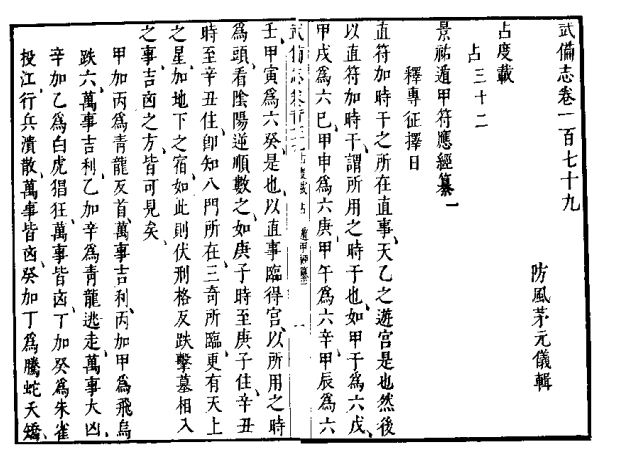 武備志卷一百七十九
防風茅元儀輯
占度載
占三十二
景祐遁甲符應經纂一
釋專征擇日
直符加時干之所在直事天乙之遊宫是也然後
以直符加時干謂所用之時干也如甲子為六戊
甲戌為六巳甲申為六庚甲午為六辛甲辰為六
壬甲寅為六癸是也以直事臨得宫以所用之時
為頭看陰陽逆順數之如庚子時至庚子住辛丑
時至辛丑住卽知八門所在三奇所臨更有天上
之星加地下之宿如此則伏刑格反跌擊墓相入
之事吉凶之方皆可見矣
甲加丙為青龍反首萬事吉利丙加甲為飛鳥
跌穴萬事吉利乙加辛為青龍逃走萬事大凶
辛加乙為白虎猖狂萬事皆凶丁加癸為朱雀
投江行兵潰散萬事皆凶癸加丁為騰蛇天矯